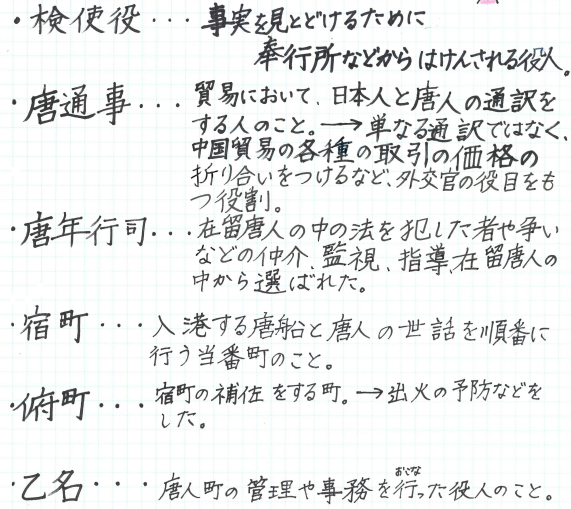 ・検使役・・・事実を見とどけるために
奉行所などからはけんされる役人。
・唐通事・・・貿易において、日本人と唐人の通訳を
する人のこと。→単なる通訳ではなく、
中国貿易の各種の取引の価格の
折り合いをつけるなど、外交官の役目をも
つ役割。
・唐年行司・・・在留唐人の中の法を犯した者や争い
などの仲介、監視、指導、在留唐人の
中から選ばれた。
・宿町・・・入港する唐船と唐人の世話を順番に
行う当番町のこと。
・俯町・・・宿町の補佐をする町。→出火の予防などを
した。
・乙名・・・唐人町の管理や事務を行った役人のこと。
おこな